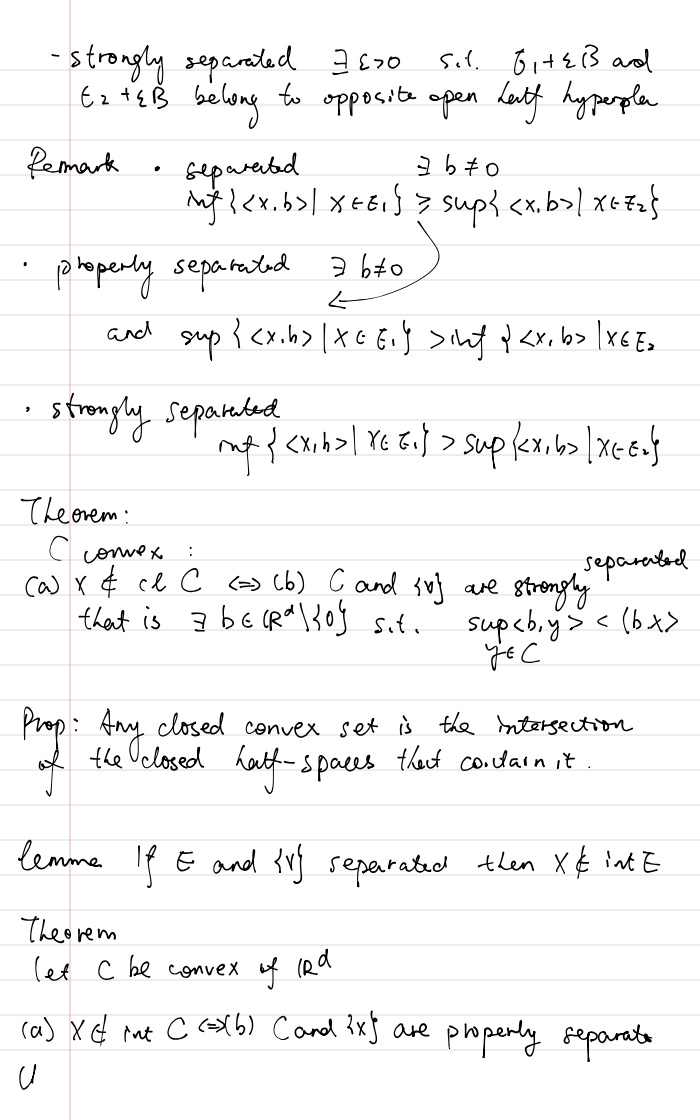 - strongly separated ∃ ε>0 s.t. E₁+εB and
E₂+εB belong to opposite open half hyperpla
Remark • separated ∃ b ≠ 0
inf{<x,b>| x∈E₁} ≥ sup{<x,b>| x∈E₂}
• properly separated ∃ b≠0
and sup{<x,b>|x∈E₁} > inf{<x,b>|x∈E₂
• strongly separated
inf{<x,b>| x∈E₁} > sup{<x,b>|x∈E₂}
Theorem:
C convex :
separated
(a) x ∉ cl C <=> (b) C and {x} are strongly
that is ∃ b∈ℝᵈ\{0} s.t. sup<b,y> < <b x>
y∈C
Prop: Any closed convex set is the intersection
of the closed half-spaces that contain it.
lemme If E and {x} separated then x∉ int E
Theorem
let C be convex of ℝᵈ
(a) x∉ int C <=>(b) C and {x} are properly separate